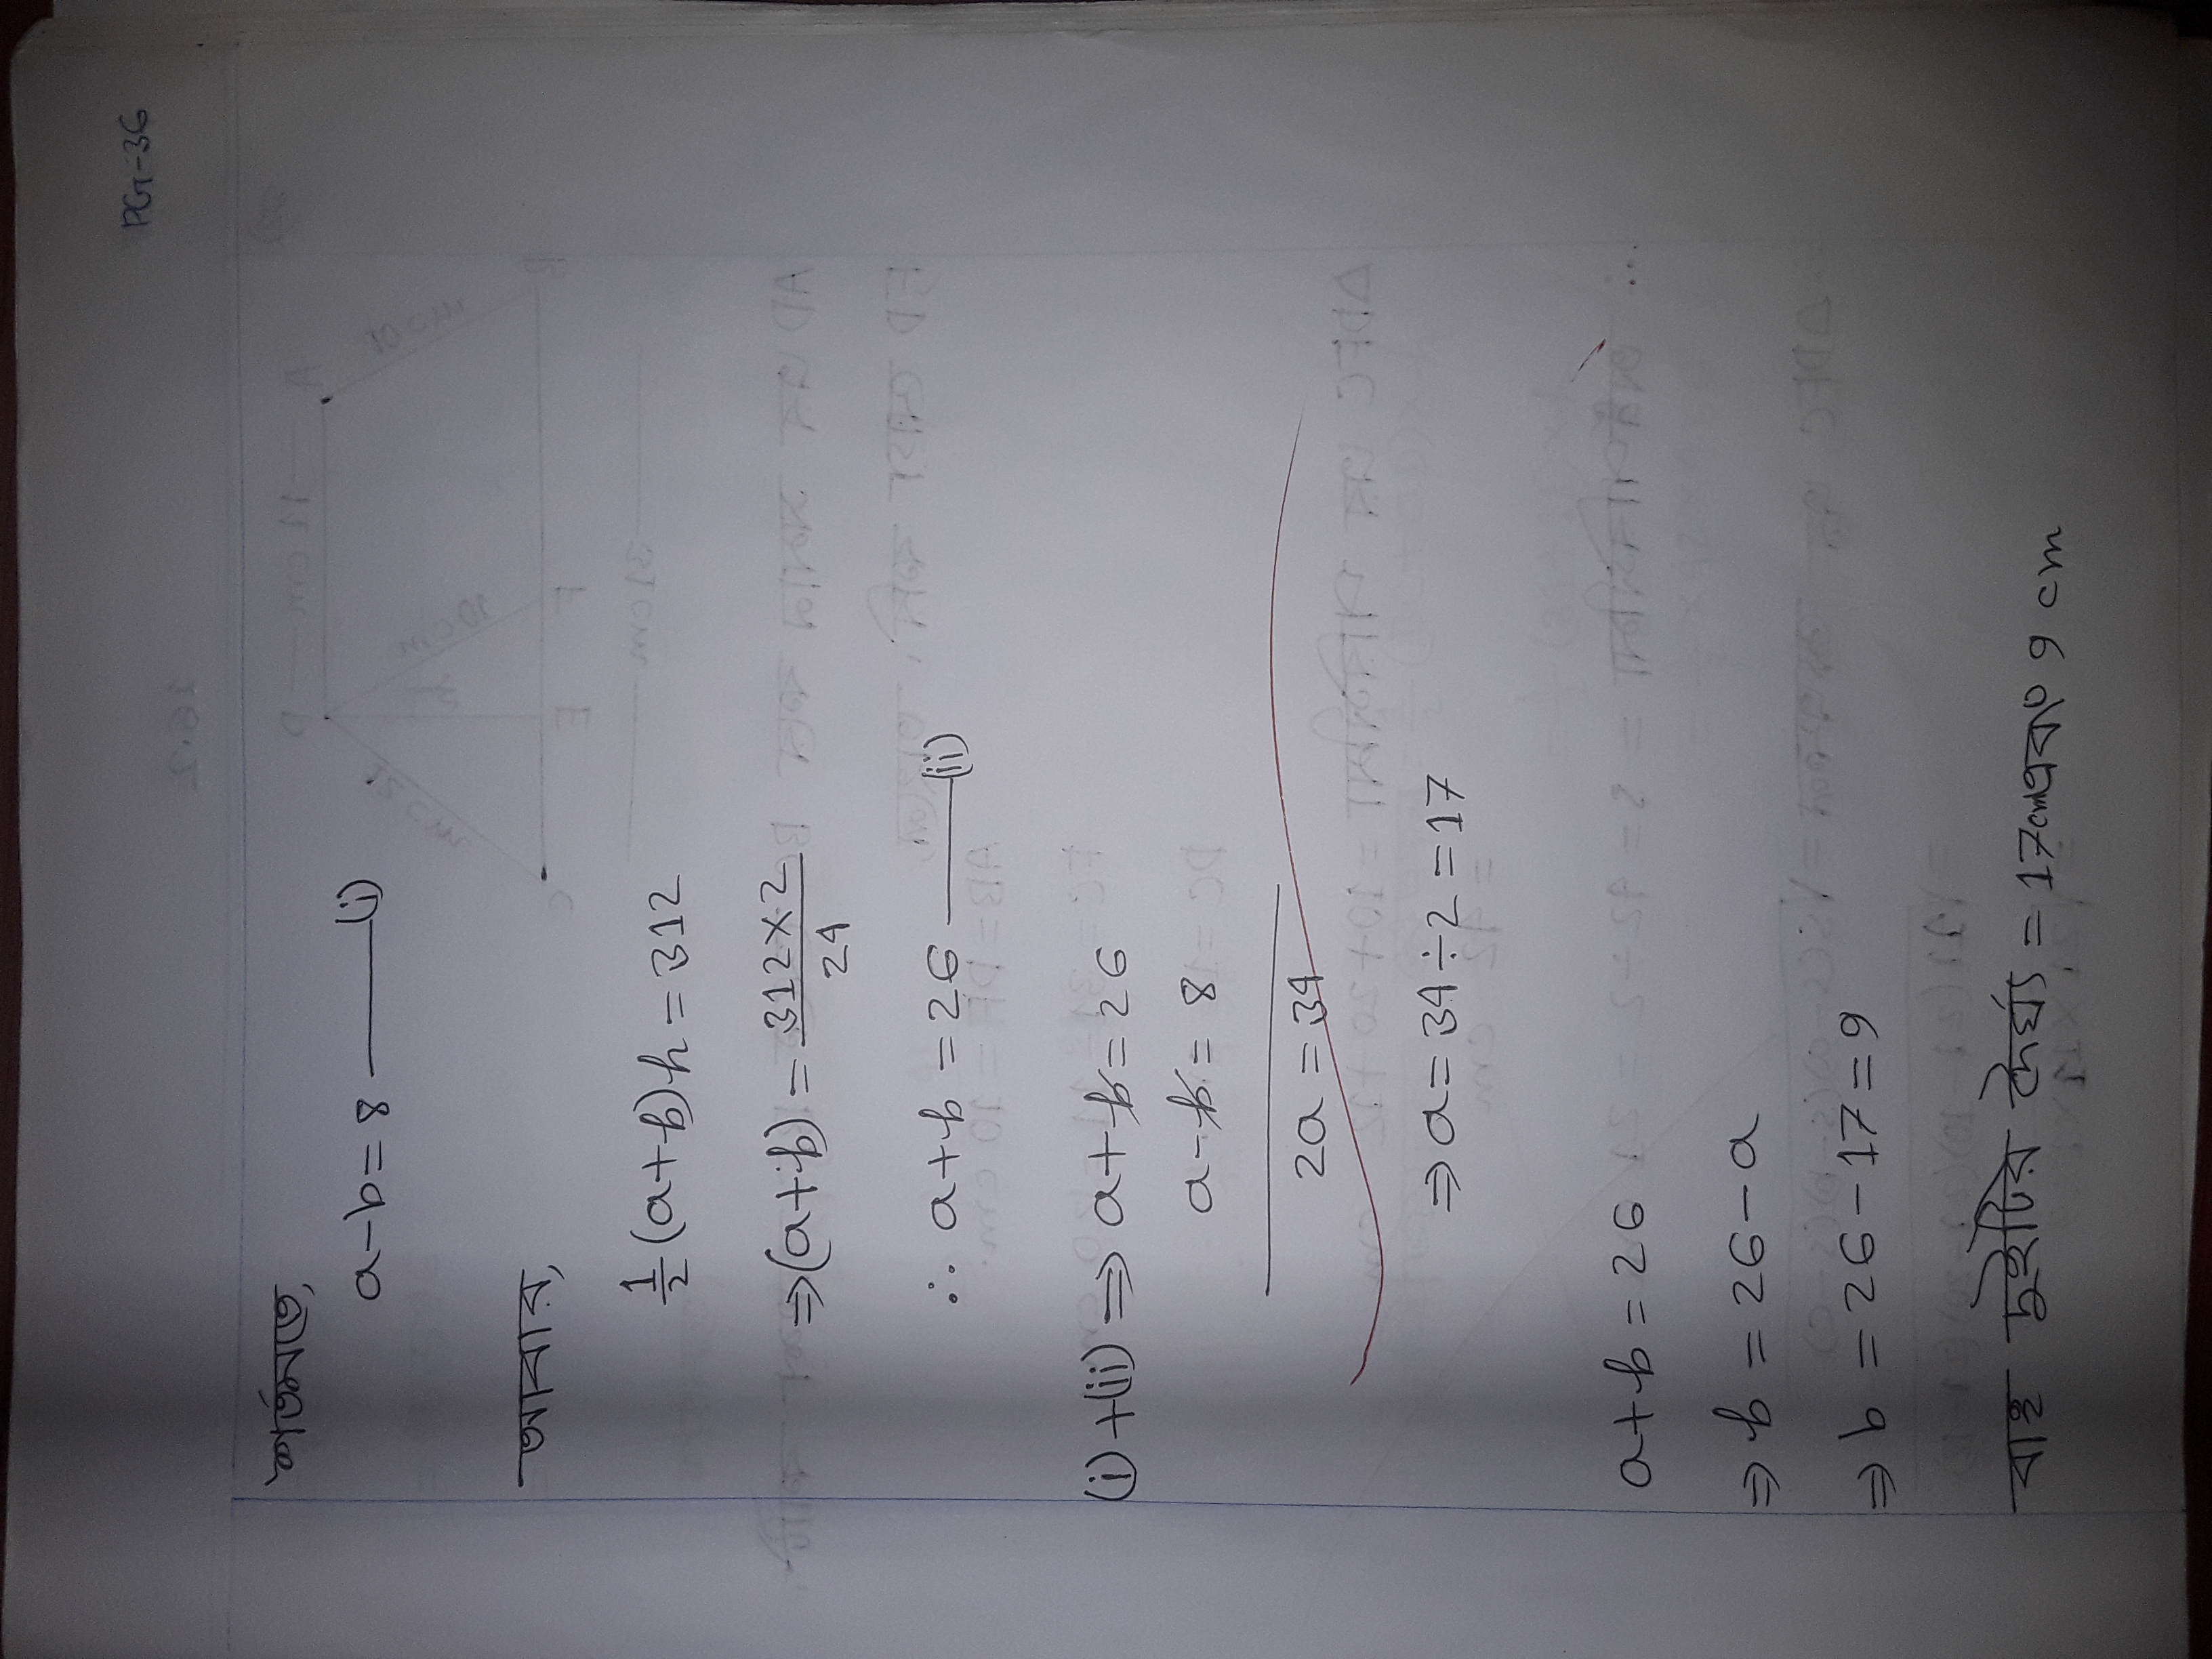 PG-36
শর্তমতে,
a-b=8 ———(i)
আবার,
1/2 (a+b)h=312
⇒(a+b) = 312×2/24
∴ a+b = 26 ———(ii)
(i)+(ii) ⇒ a+b=26
a-b= 8
2a = 34
⇒a=34÷2=17
a+b=26
⇒ b = 26-a
⇒ b = 26-17=9
বাহু দুইটির দৈর্ঘ্য = 17cm এবং 9 cm